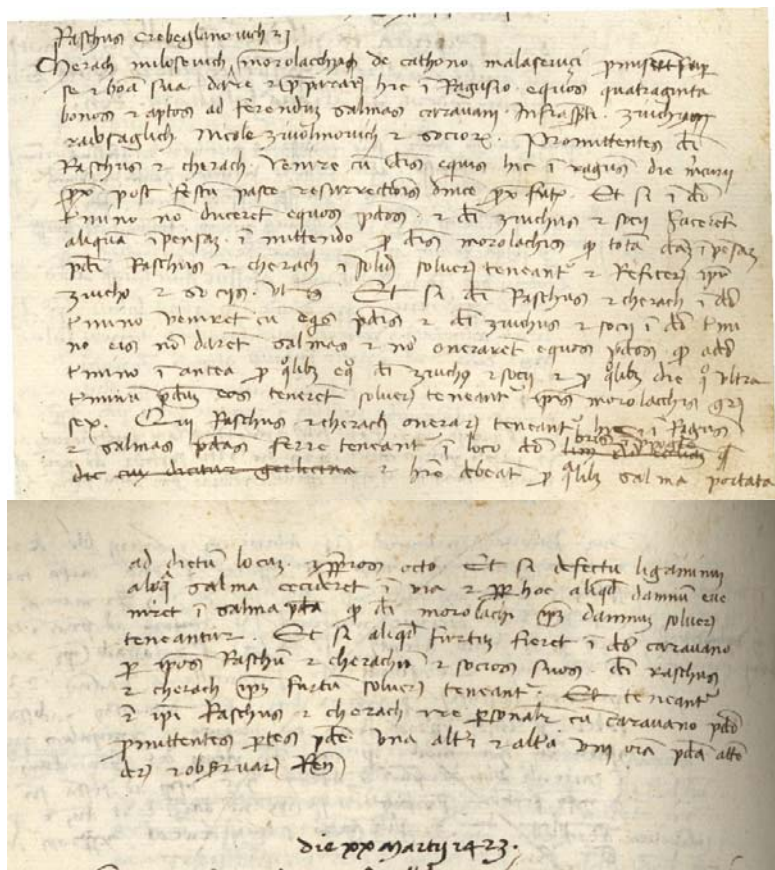 Raschus Crebeglanovich et
Cherach milosevich morolacchus de cathono malasevici promiserunt super
se et bona sua dare et preparare hic i Ragusio equos quatraginta
bonos et aptos ad ferendum salmas caravani Infrascripti. zivicho
radosaglich Nicole zivolinovich et sociorum. Promittentes dicti
Raschus et cherach venire cu dictis equis hic i ragusio die mercurii
prox post festu pasce resurrectionis dnice prox futur. Et si i dcto
tmino no duceret equos pdctos et dicti zivichus et socii faceret
aliqua ipensam i mittendo pro dictis morolachis q tota dictam ipensam
pdicti Raschus et cherach i solidum solvere teneant et Reficere ipsi
zivicho et sociis. Et si dicti Raschus et cherach i dcto
tmino veniret cu equis pdictis et dicti zivichus et socii i dcto tmi
no eis no daret salmas et no oneraret equos pdctos q a dcto
tmino i antea p qlibet equo dicti zivichus et socii et p qlibet die q ultra
tminu pdictum eos teneret solvere teneant ipsis morolacchis gr
sex. Qui Raschus et cherach onerare teneant hic i Ragusio
et salmas pdctas ferre teneant i loco dcto
dic cuy dicitur gerlectna et hre debeat p qlibet salma portata
ad dictu locum. ypperos octo. Et si defectu ligaminum
aliqua salma cecideret i via et propter hoc aliqd damnum eve
niret i salma pdcta q dicti morolachi ipsum damnum solvere
teneantur. Et si aliqd furtum fieret i dcto caravano
p ipsos Raschu et cherachu et socios suos. dicti raschus
et cherach ipsum furtu solvere teneant. Et teneant
ipsi Raschus et cherach ire personaliter cu caravano pdcto
pmittentes partes pdcte una alteri et altera uni omnia pdcta atten
dere et observare Ren
die xx martij 1423.